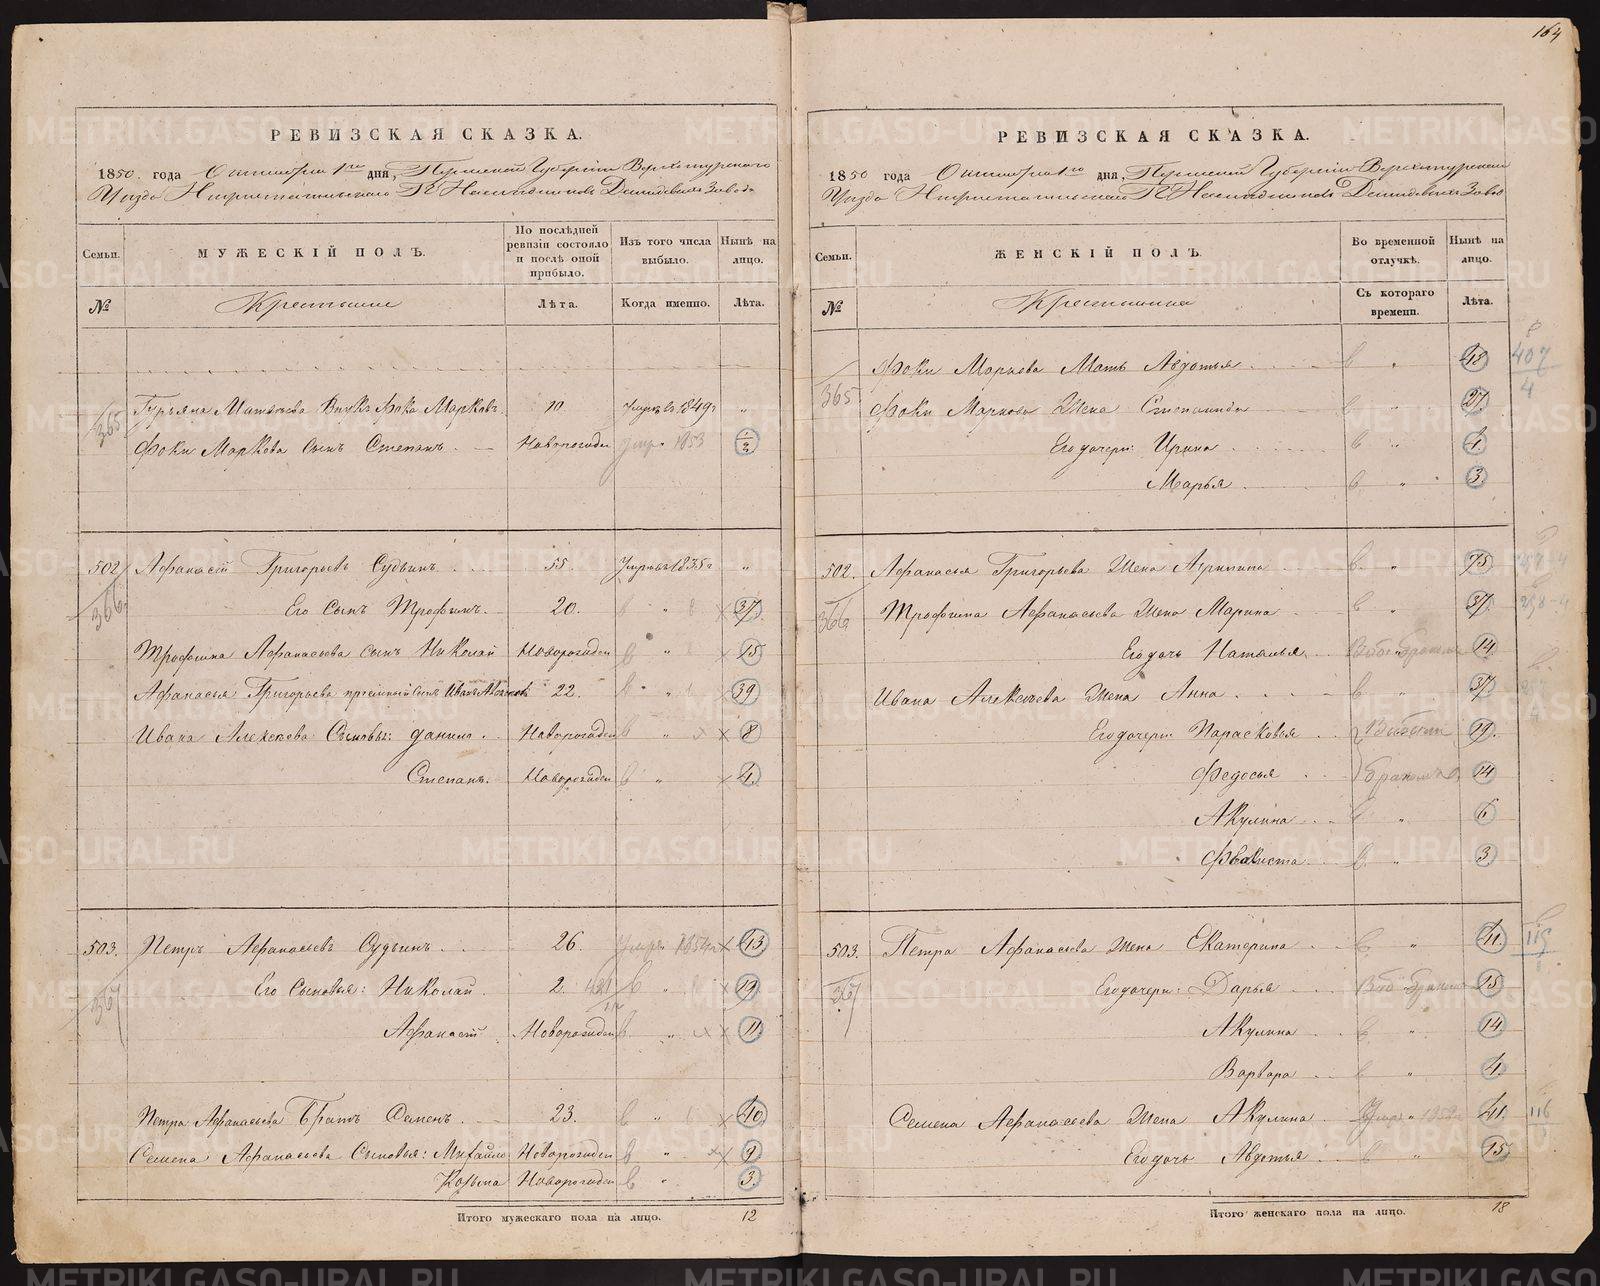 164
РЕВИЗСКАЯ СКАЗКА.
1850 года Октября 1го дня, Пермской Губернiи Верхотурского
Уѣзда Нижнетагильскаго Гг Наслѣдниковъ Демидовыхъ Завода
Семьи. МУЖЕСКIЙ ПОЛЪ. По послѣдней ревизiи состояло и послѣ оной прибыло. Изъ того числа выбыло. Нынѣ на лицо.
№ Крестьяне Лѣта. Когда именно. Лѣта.
365 Гурьяна Матвѣева Внукъ Фока Марковъ 10 Умеръ въ 1849г "
Фоки Маркова сынъ Степанъ Новорожден умре 1853 1/2
502 Афанасiй Григорьевъ Судьинъ 55. Умеръ въ 1835г "
366 Его Сынъ Трофимъ 20. " 37
Трофима Афанасьева сынъ Николай Новорожден " 15
Афанасья Григорьева прiемный сынъ Иванъ Алексѣевъ 22. " 39
Ивана Алексѣева Сыновья: Данило Новорожден " 8
Степанъ. Новорожден " 4.
503. Петръ Афанасьевъ Судьинъ 26. Умре 1854 43
367 Его Сыновья: Николай 2. " 19
Афанасiй Новорожден " 11
Петра Афанасьева Братъ Семенъ 23. " 40.
Семена Афанасьева Сыновья: Михайло Новорожден " 9
Козьма Новорожден " 3.
Итого мужескаго пола на лицо. 12
РЕВИЗСКАЯ СКАЗКА.
1850 года Октября 1го дня, Пермской Губернiи Верхотурскаго
Уѣзда Нижнетагильскаго Гг Наслѣдниковъ Демидовыхъ Завод
Семьи. ЖЕНСКIЙ ПОЛЪ. Во временной отлучкѣ. Нынѣ на лицо.
№ Крестьянки Съ котораго времени. Лѣта.
365 Фоки Маркова Мать Авдотья " 48 407
4
Фоки Маркова Жена Степанида " 27
Его дочери: Ирина " 4.
Марья " 3.
502. Афанасья Григорьева Жена Агрипина " 75
366 Трофима Афанасьева Жена Марина " 37. 258-4
Его дочь Наталья 14
Ивана Алексѣева Жена Анна " 37
Его дочери: Парасковья 19.
Федосья 14
Акулина " 6
Фѣклиста " 3
503. Петра Афанасьева жена Екатерина " 41. 115
367 Его дочери: Дарья 15
Акулина " 14
Варвара " 4.
Семена Афанасьева Жена Акулина Умре " 41. 116
Его дочь Авдотья " 15
Итого женскаго пола на лицо. 18
METRIKI.GASO-URAL.RU